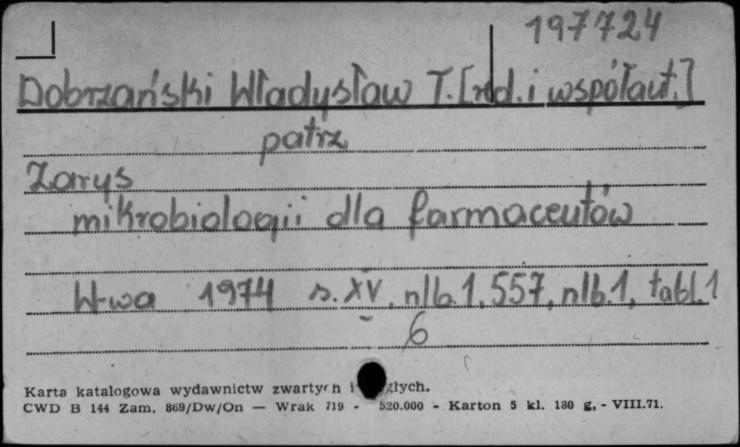 197724
Dobrzański Władysław T. [red. i współaut.]
patrz
Zarys
mikrobiologii dla farmaceutów
W-wa 1974 s. XV, nlb. 1, 557, nlb. 1, tabl. 1
6
Karta katalogowa wydawnictw zwartych i głych.
CWD B 144 Zam. 869/Dw/On — Wrak 719 - 520.000 - Karton 5 kl. 180 g, - VIII.71.